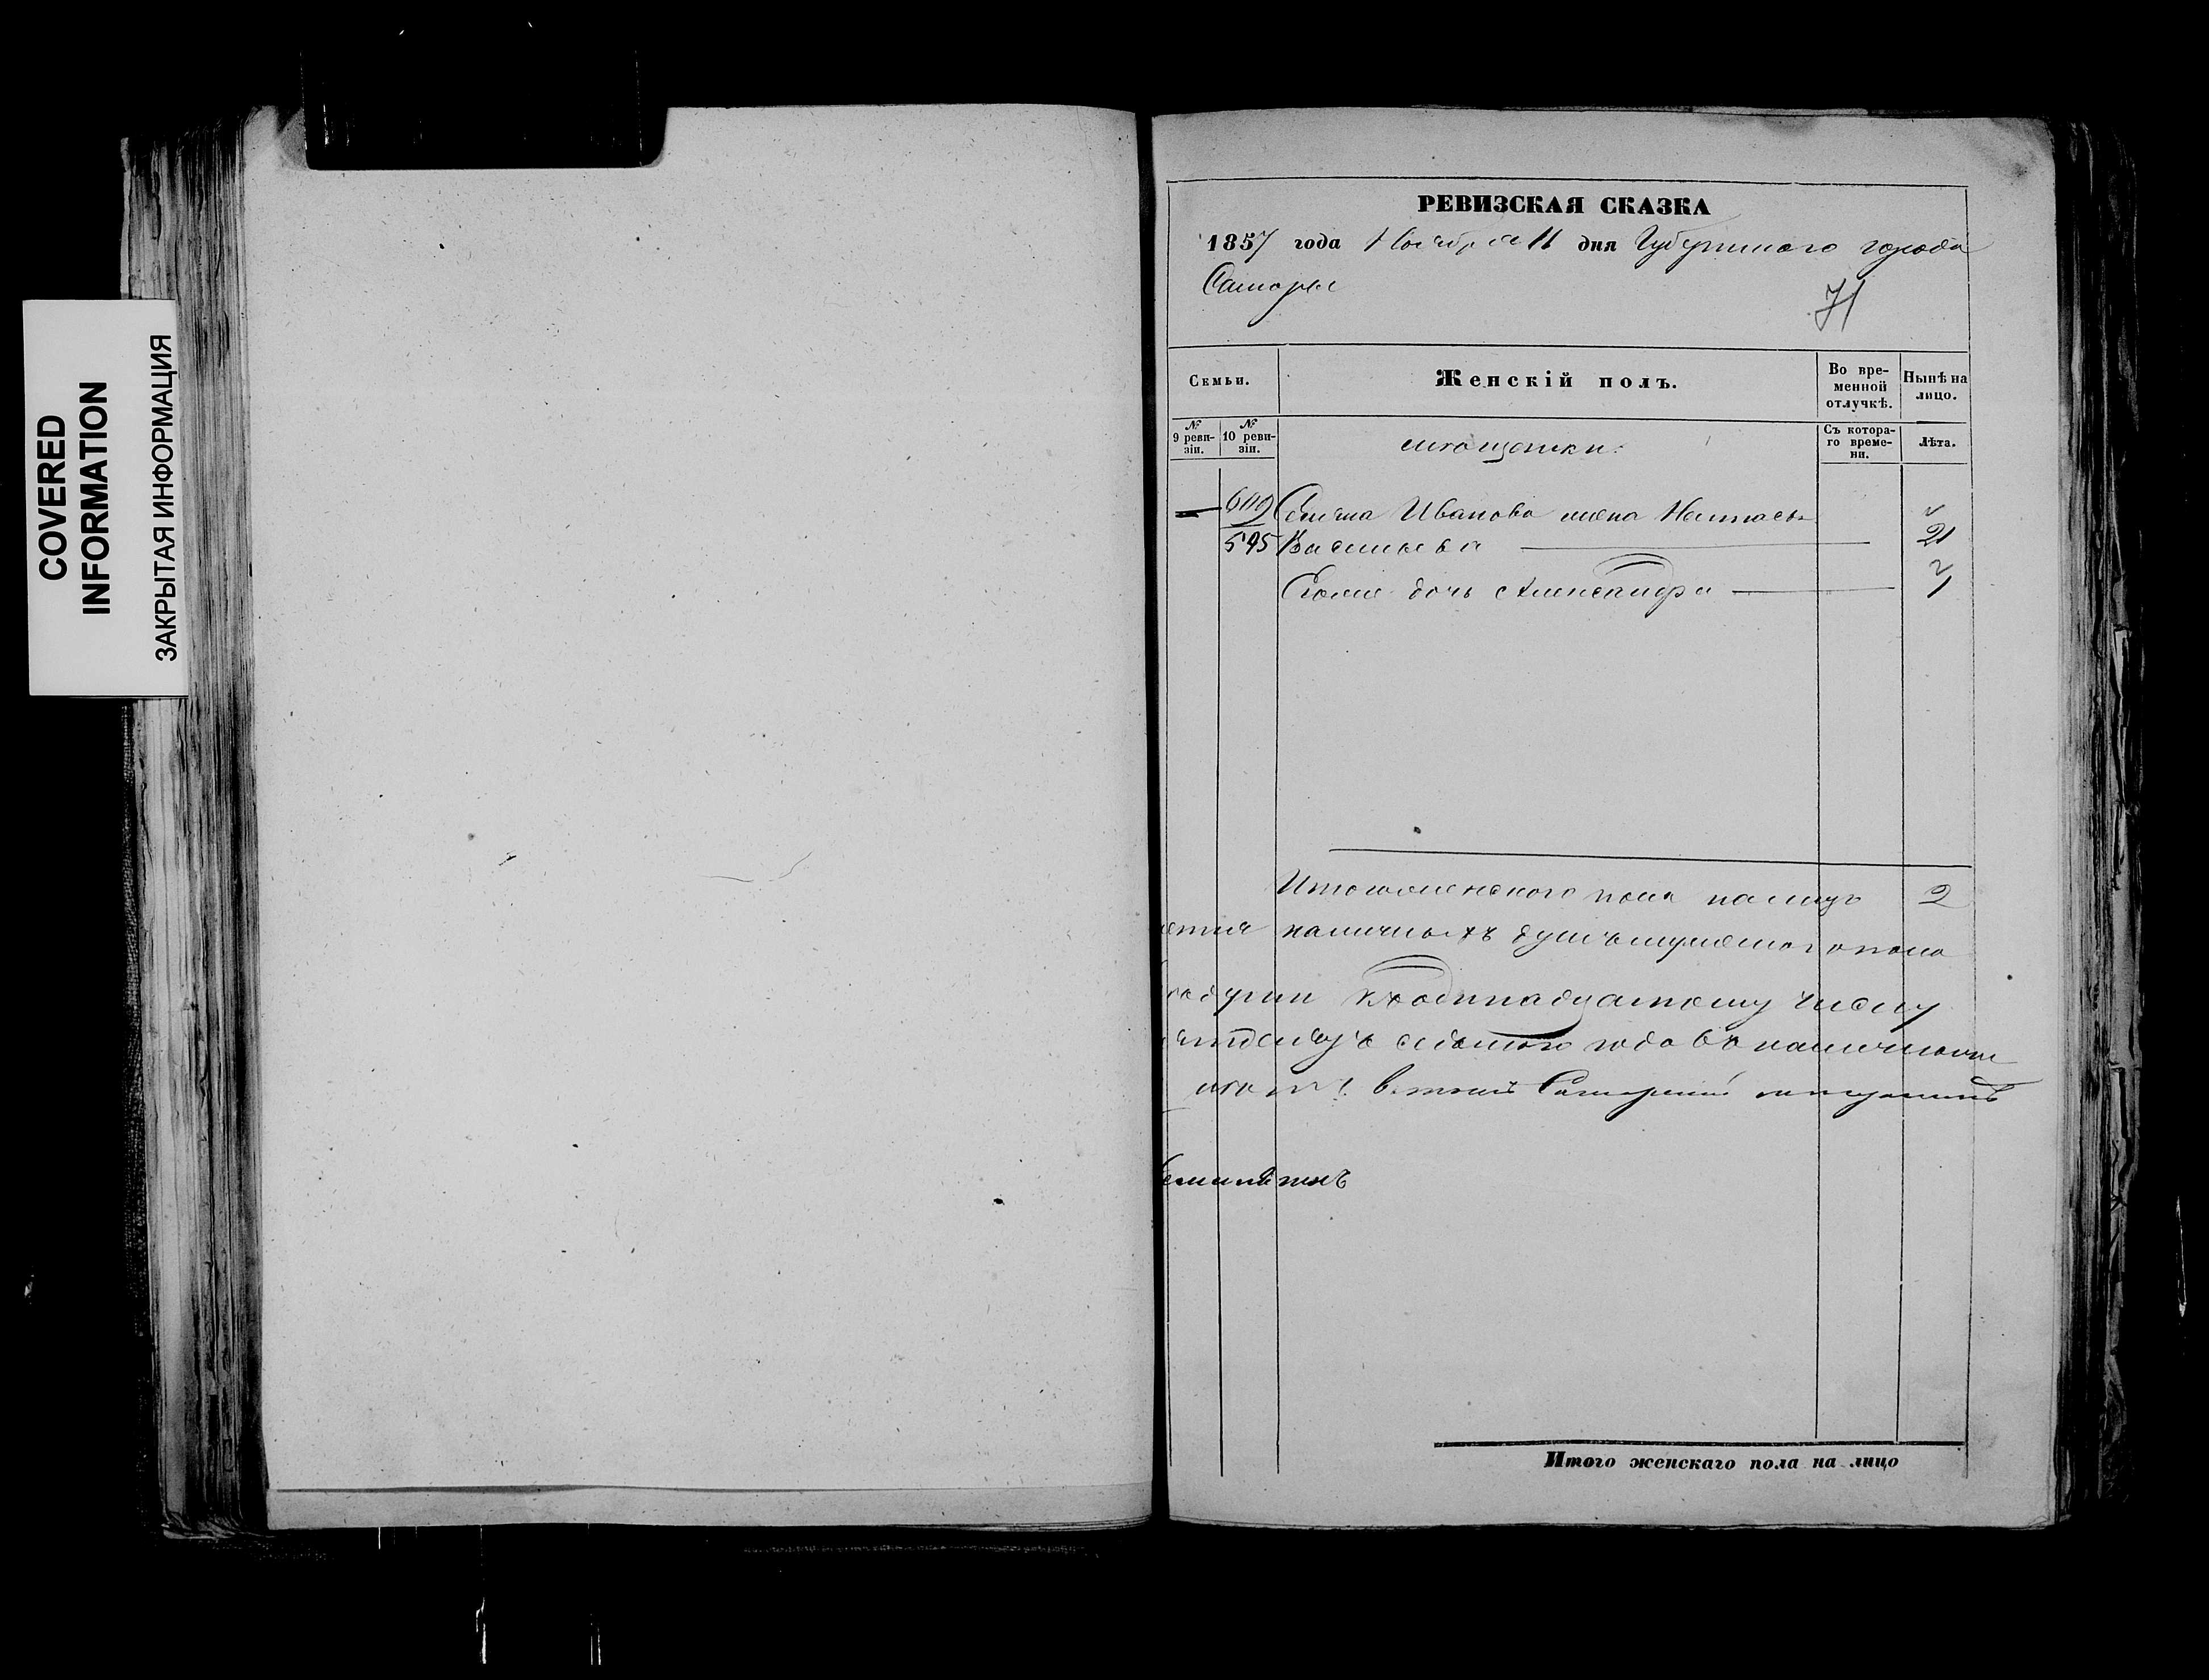 COVERED
INFORMATION
ЗАКРЫТАЯ ИНФОРМАЦИЯ
РЕВИЗСКАЯ СКАЗКА
1857 года Ноября 11 дня Губернского города
Самары
71
Семьи.
Женскій полъ.
Во вре-
менной
отлучкѣ.
Нынѣ на
лицо.
№
9 реви-
зіи.
№
10 реви-
зіи.
мѣщанки.
Съ котора-
го време-
ни.
Лѣта.
Семена Иванова жена Настасья
595 Васильева 21
дочь Александра
Итого женского пола на лицо 2
наличныхъ душъ мужеского пола
одинадцатому числу
седьмого года въ наличности
Итого женскаго пола на лицо